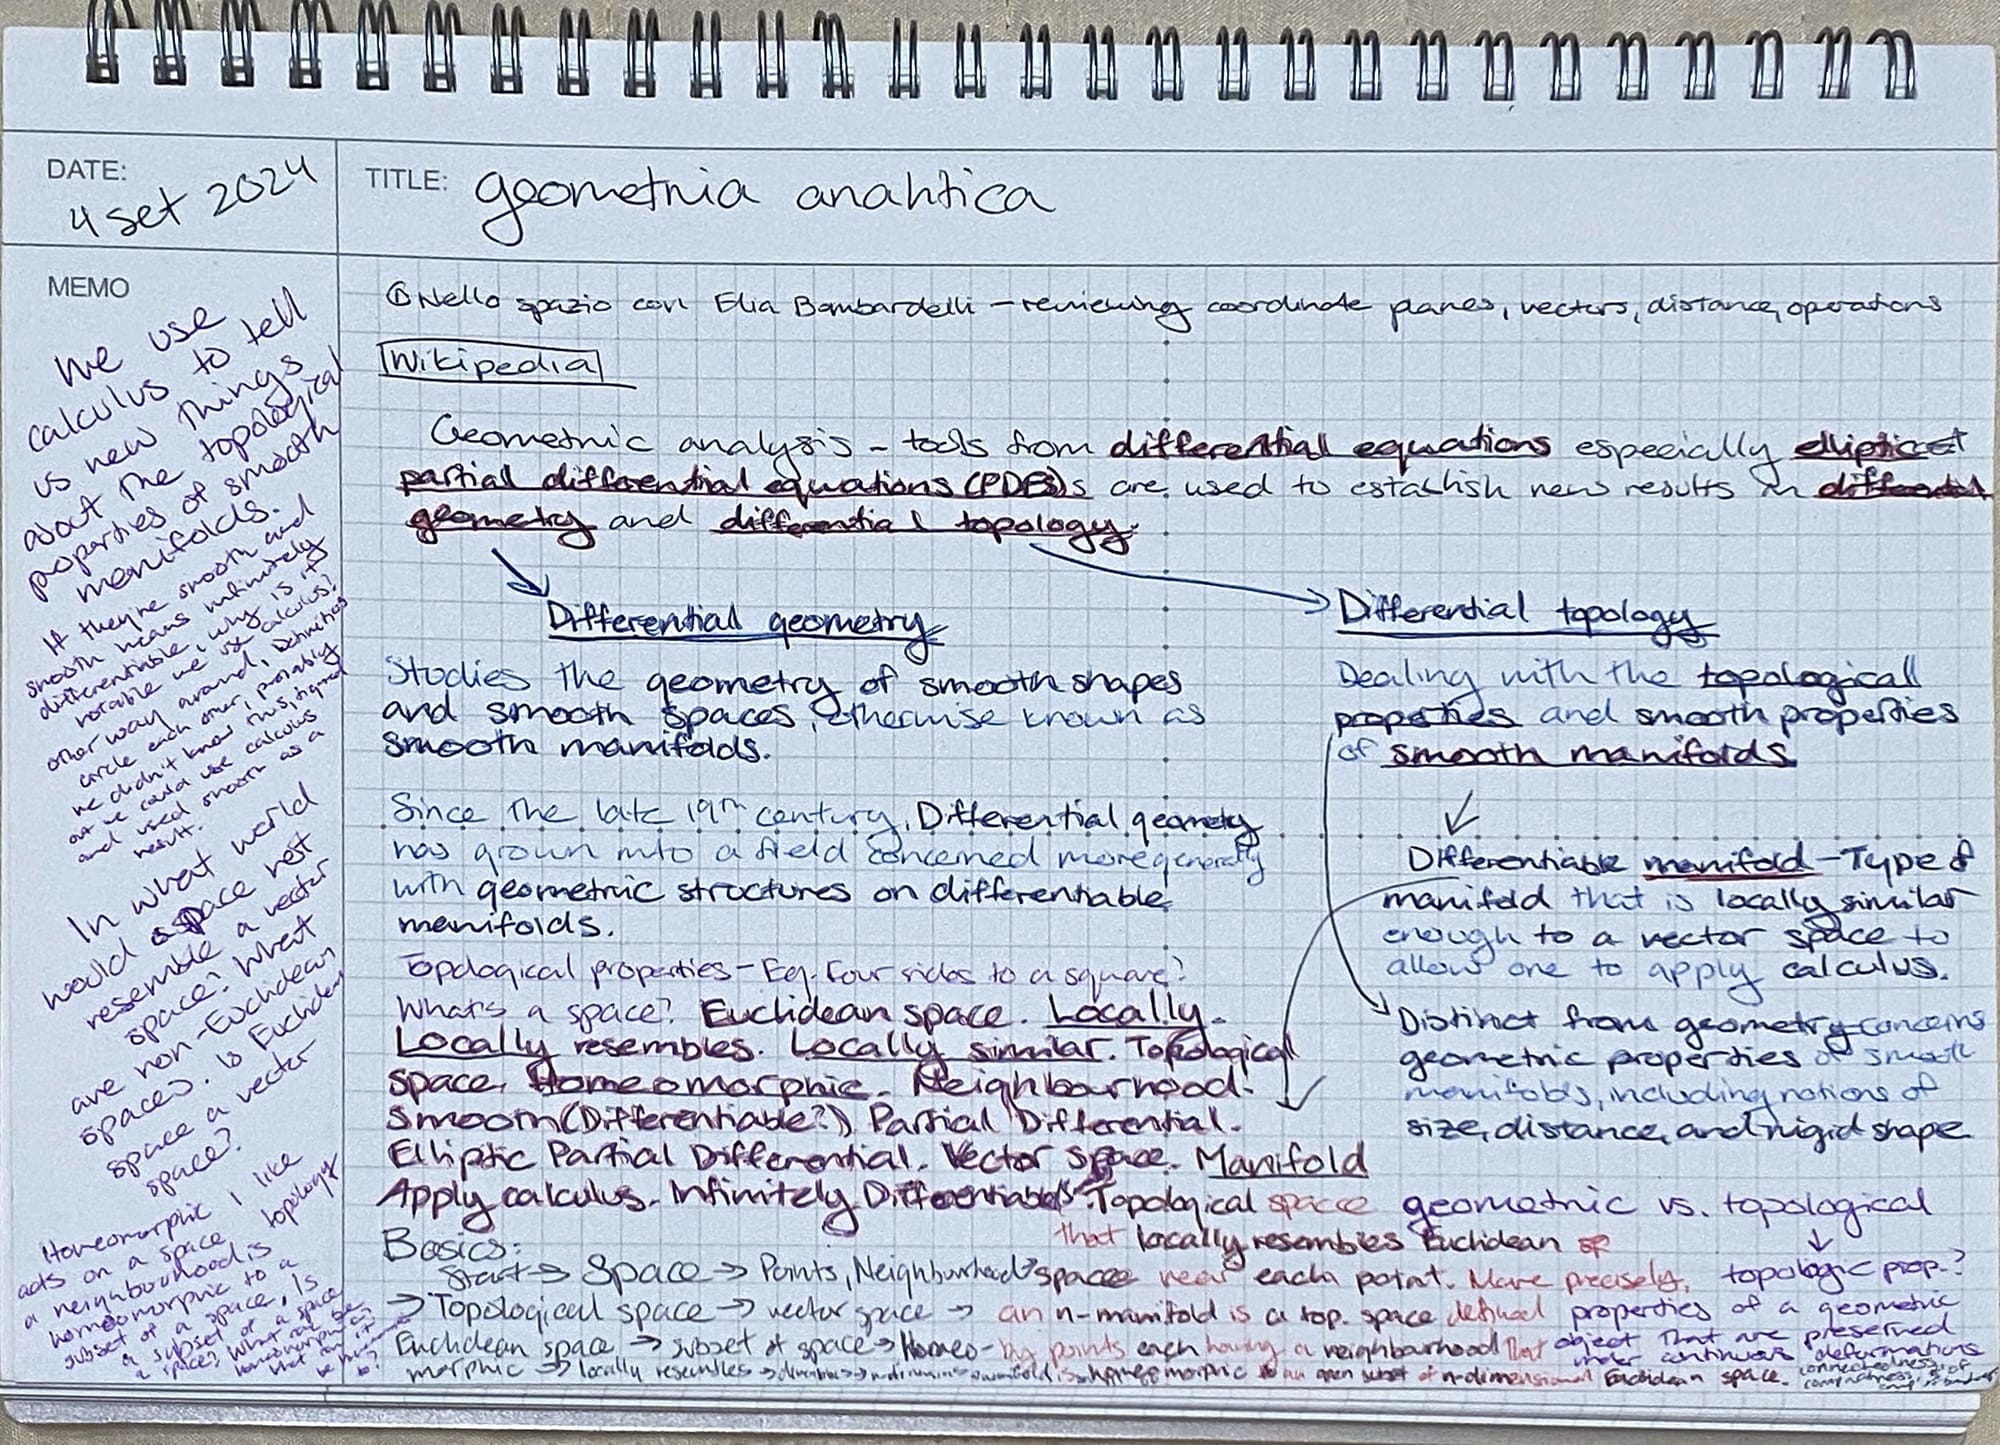 DATE:
4 set 2024
TITLE: geometria analitica
MEMO
We use
calculus to tell
us new things
about the topological
properties of smooth
manifolds.
If they're smooth and
smooth means infinitely
differentiable, why is it
notable we use calculus?
other way around, Definitions
circle each other, probably
we didn't know this, figured
out we could use calculus
and used smooth as a
result.
In what world
would a space not
resemble a vector
space? What
are non-Euclidean
spaces. Is Euclidean
space a vector
space?
Homeomorphic I like
acts on a space topology
a neighbourhood is
homeomorphic to a
subset of a space, Is
a subset of a space
a space? What can be
homeomorphic
what can it
be
to?
① Nello spazio con Elia Bombardelli – reviewing coordinate planes, vectors, distance, operations
Wikipedia
Geometric analysis – tools from differential equations especially elliptic
partial differential equations (PDEs)s are used to establish new results in differential
geometry and differential topology.
Differential geometry
Studies the geometry of smooth shapes
and smooth spaces, otherwise known as
smooth manifolds.
Since the late 19th century, Differential geometry
has grown into a field concerned more generally
with geometric structures on differentiable
manifolds.
Topological properties – Eg. Four sides to a square?
What's a space? Euclidean space. Locally.
Locally resembles. Locally similar. Topological
space. Homeomorphic. Neighbourhood.
Smooth (Differentiable?) Partial Differential.
Elliptic Partial Differential. Vector space. Manifold
Apply calculus. Infinitely Differentiable
Differential topology
Dealing with the topological
properties and smooth properties
of smooth manifolds
Differentiable manifold – Type of
manifold that is locally similar
enough to a vector space to
allow one to apply calculus.
Distinct from geometry concerns
geometric properties of smooth
manifolds, including notions of
size, distance, and rigid shape
Topological space
that locally resembles Euclidean
space near each point. More precisely,
an n-manifold is a top. space defined
by points each having a neighbourhood that
is homeomorphic to an open subset of n-dimensional Euclidean space.
geometric vs. topological
topologic prop.?
properties of a geometric
object that are preserved
under continuous deformations
connectedness,
compactness,
Basics:
Start → Space → Points, Neighbourhood
→ Topological space → vector space →
Euclidean space → subset of space → Homeo-
morphic → locally resembles →